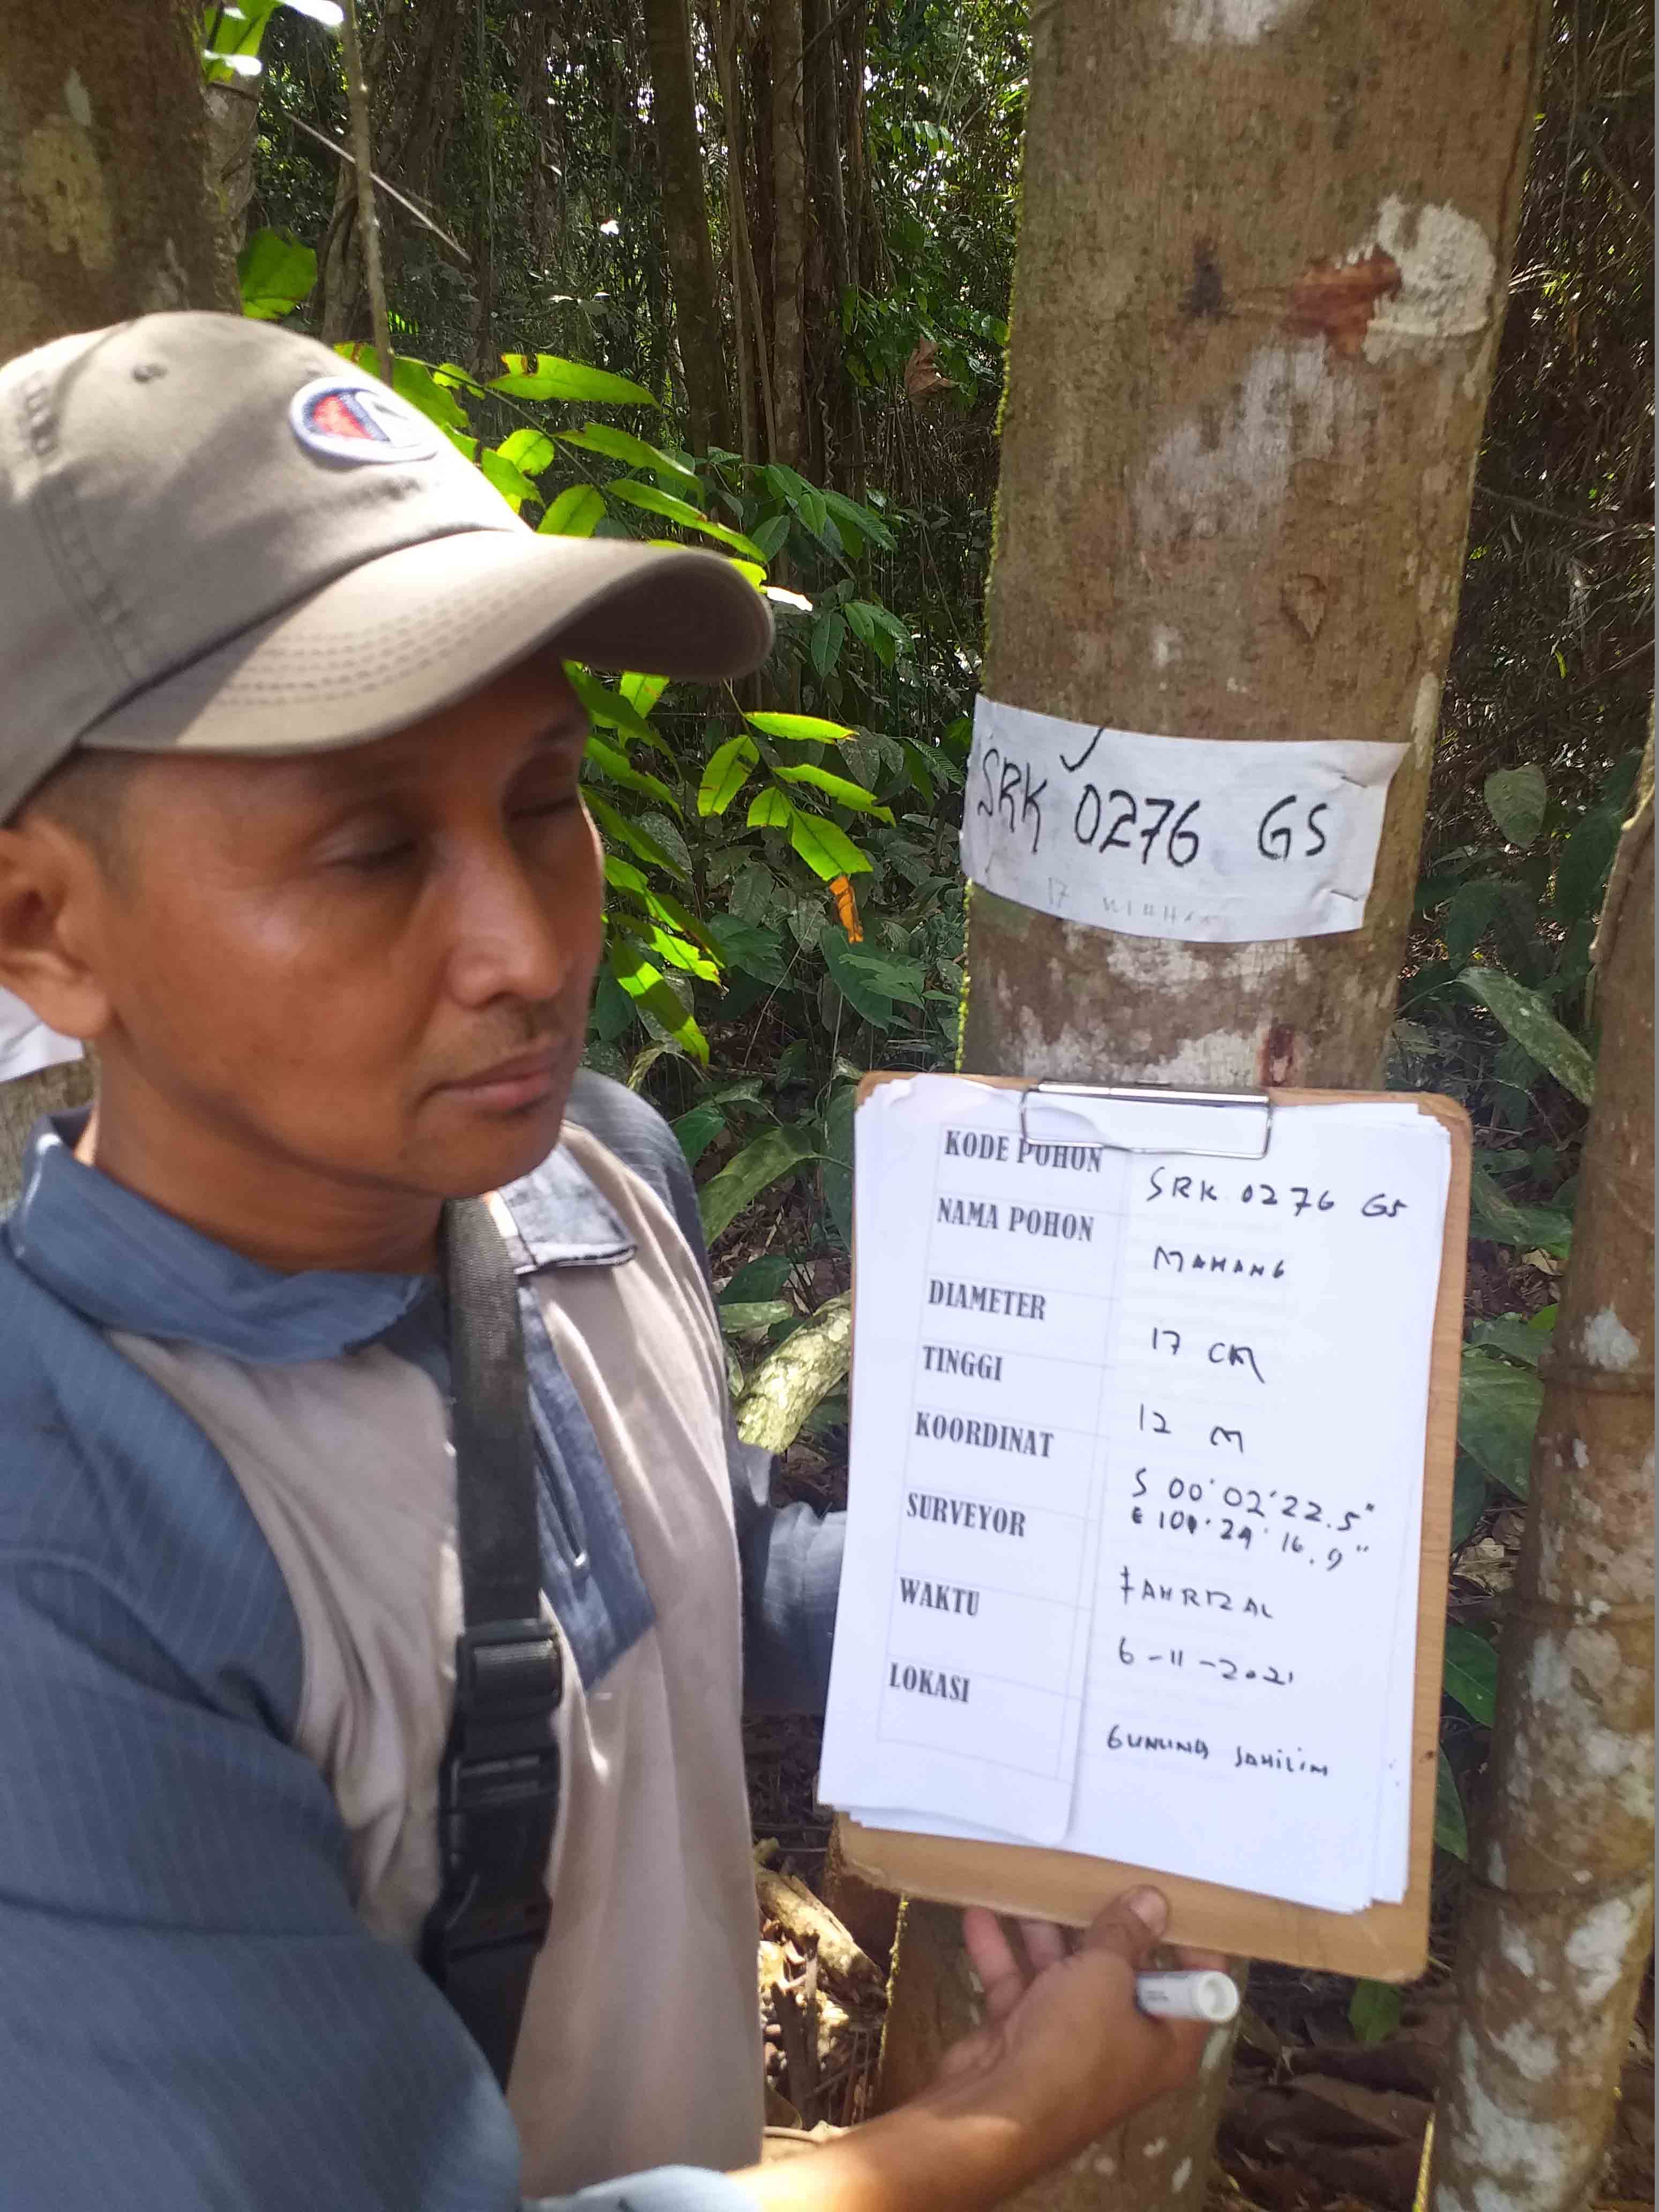 SRK 0276 GS
17
KODE POHON SRK 0276 GS
NAMA POHON MAHANG
DIAMETER 17 CM
TINGGI 12 M
KOORDINAT S 00°02'22.5"
E 101°29'16.9"
SURVEYOR FAHRIZAL
WAKTU 6-11-2021
LOKASI GUNUNG SAHILIM